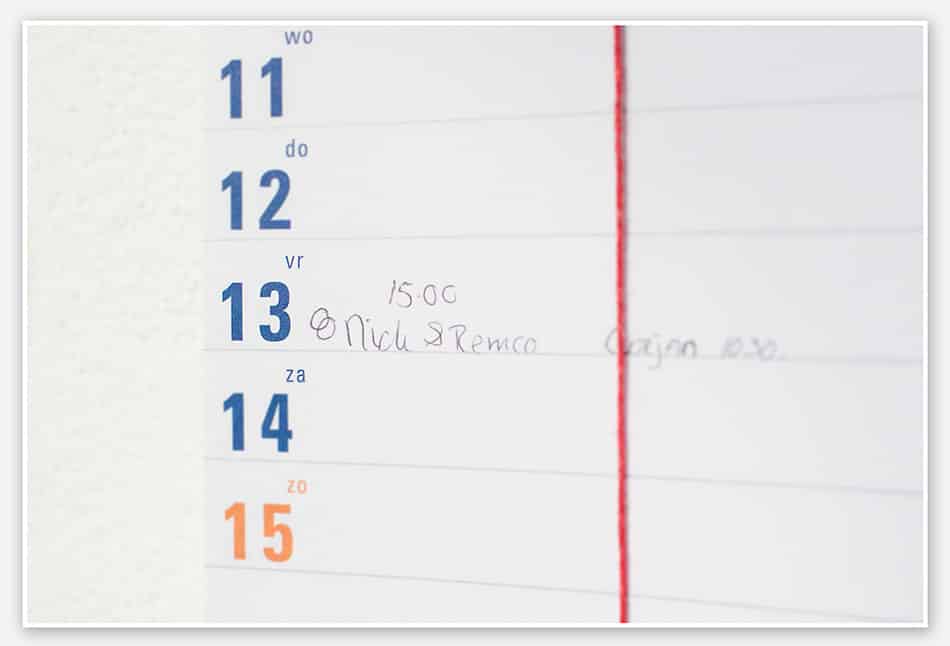 wo
11
do
12
vr
13
15.00
Nick & Remco
10.30
za
14
zo
15